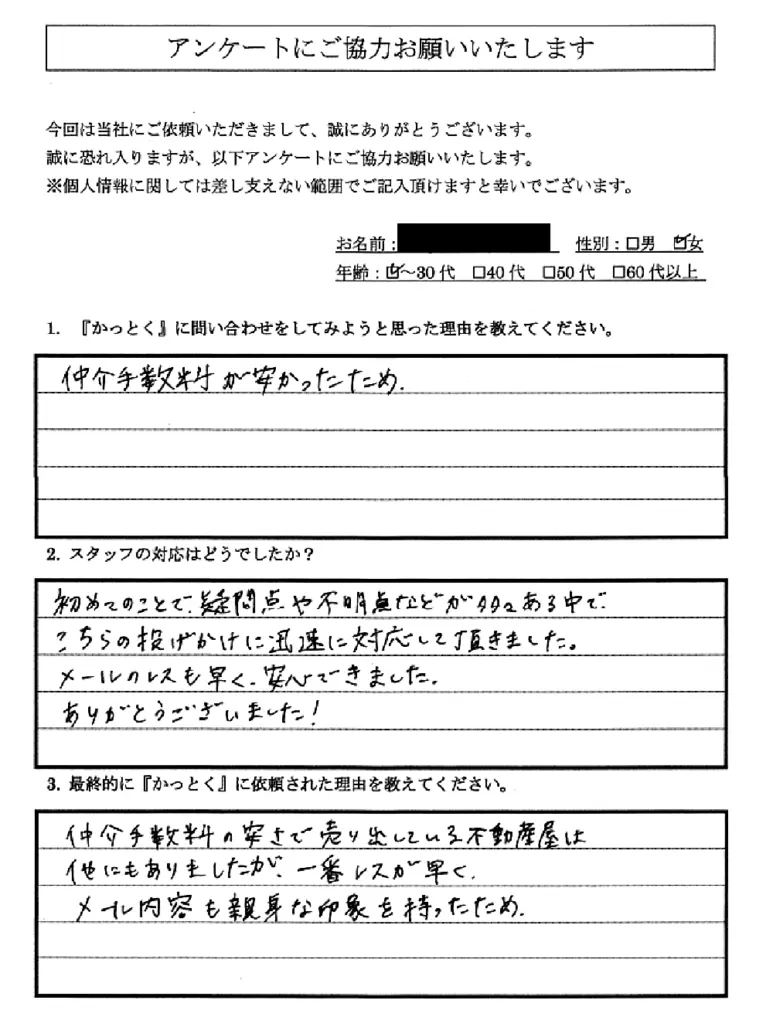 アンケートにご協力お願いいたします
今回は当社にご依頼いただきまして、誠にありがとうございます。
誠に恐れ入りますが、以下アンケートにご協力お願いいたします。
※個人情報に関しては差し支えない範囲でご記入頂けますと幸いでございます。
お名前： 性別：□男 ☑女
年齢：☑～30代 □40代 □50代 □60代以上
1. 『かっとく』に問い合わせをしてみようと思った理由を教えてください。
仲介手数料が安かったため.
2. スタッフの対応はどうでしたか？
初めてのことで、疑問点や不明点などが多々ある中で、
こちらの投げかけに迅速に対応して頂きました。
メールのレスも早く、安心できました。
ありがとうございました！
3. 最終的に『かっとく』に依頼された理由を教えてください。
仲介手数料の安さで売り出している不動産屋は
他にもありましたが、一番レスが早く、
メール内容も親身な印象を持ったため.